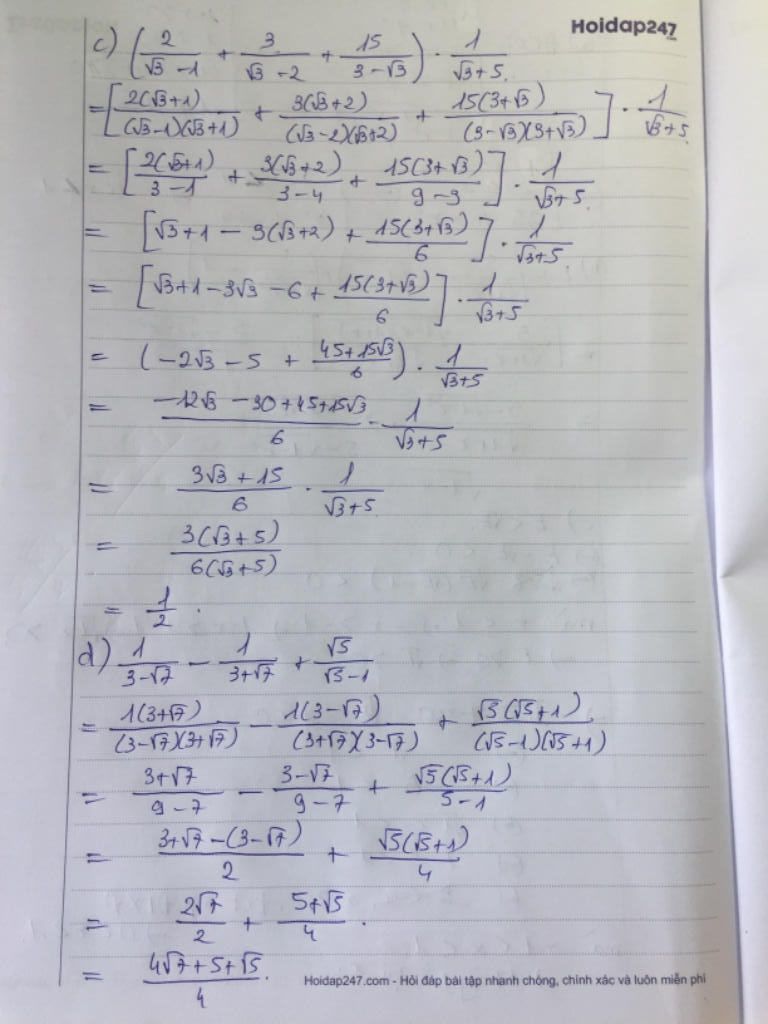 Hoidap247
c) (2/(√3 - 1) + 3/(√3 - 2) + 15/(3 - √3)) · 1/(√3+5)
= [2(√3+1)/((√3-1)(√3+1)) + 3(√3+2)/((√3-2)(√3+2)) + 15(3+√3)/((3-√3)(3+√3))] · 1/(√3+5)
= [2(√3+1)/(3-1) + 3(√3+2)/(3-4) + 15(3+√3)/(9-3)] · 1/(√3+5)
= [√3+1 - 3(√3+2) + 15(3+√3)/6] · 1/(√3+5)
= [√3+1-3√3-6+ 15(3+√3)/6] · 1/(√3+5)
= (-2√3-5 + (45+15√3)/6) · 1/(√3+5)
= (-12√3-30+45+15√3)/6 · 1/(√3+5)
= (3√3+15)/6 · 1/(√3+5)
= 3(√3+5)/(6(√3+5))
= 1/2.
d) 1/(3-√7) - 1/(3+√7) + √5/(√5-1)
= 1(3+√7)/((3-√7)(3+√7)) - 1(3-√7)/((3+√7)(3-√7)) + √5(√5+1)/((√5-1)(√5+1))
= (3+√7)/(9-7) - (3-√7)/(9-7) + √5(√5+1)/(5-1)
= (3+√7-(3-√7))/2 + √5(√5+1)/4
= 2√7/2 + (5+√5)/4.
= (4√7+5+√5)/4.
Hoidap247.com - Hỏi đáp bài tập nhanh chóng, chính xác và luôn miễn phí